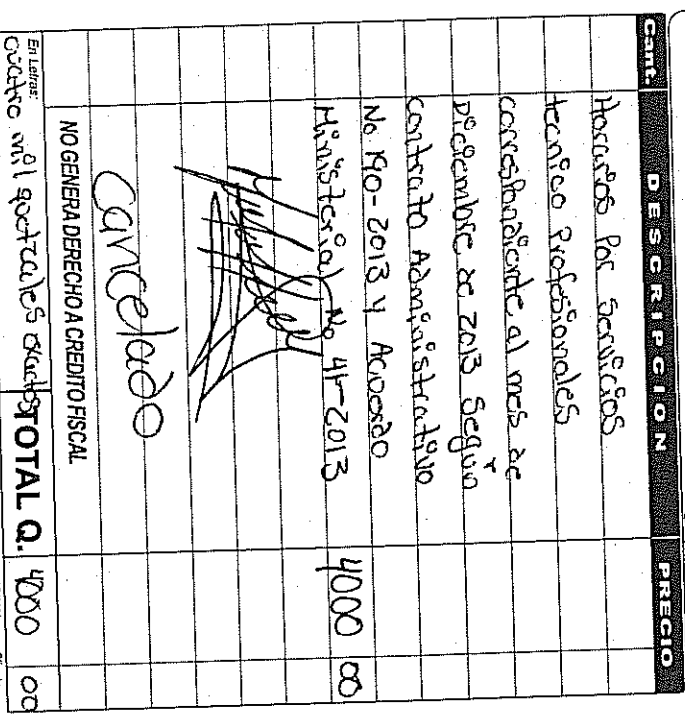 Cant. DESCRIPCION PRECIO
Honorarios Por Servicios
tecnico Profesionales
correspondiente al mes de
Diciembre de 2013 Según
contrato Administrativo
No. 190-2013 y Acuerdo
Ministerial No 41-2013 4000 00
Cancelado
NO GENERA DERECHO A CREDITO FISCAL
En Letras:
cuatro mil quetzales exactos TOTAL Q. 4000 00